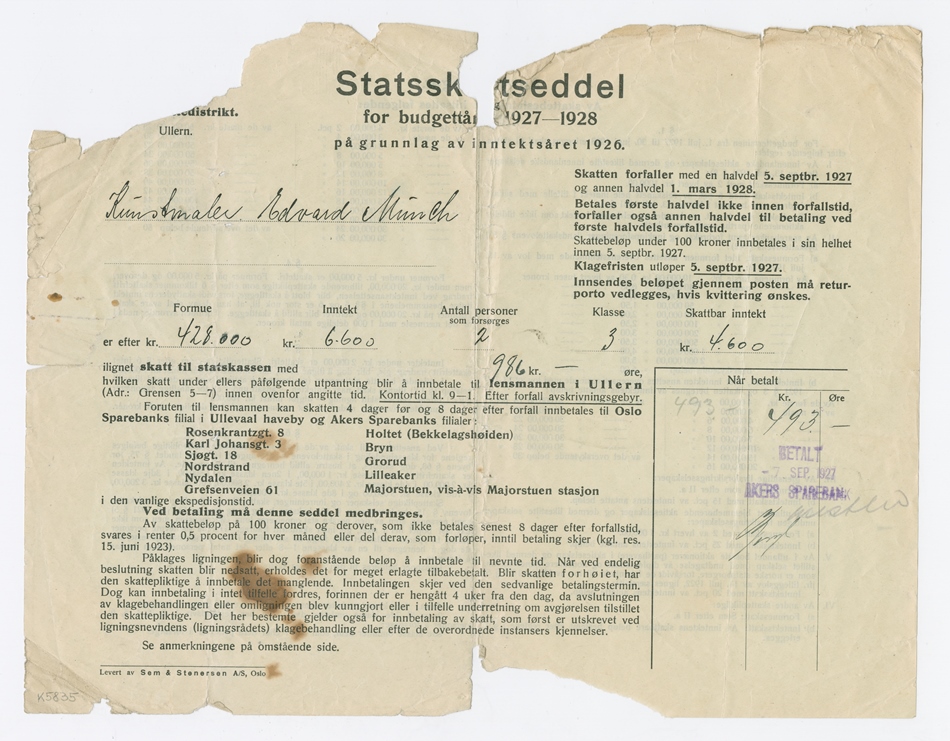 Statssk tseddel
edistrikt.
for budgettår 1927—1928
Ullern.
på grunnlag av inntektsåret 1926.
Skatten forfaller med en halvdel 5. septbr. 1927
og annen halvdel 1. mars 1928.
Betales første halvdel ikke innen forfallstid,
forfaller også annen halvdel til betaling ved
første halvdels forfallstid.
Skattebeløp under 100 kroner innbetales i sin helhet
innen 5. septbr. 1927.
Klagefristen utløper 5. septbr. 1927.
Innsendes beløpet gjennem posten må retur-
porto vedlegges, hvis kvittering ønskes.
Kunstmaler. Edvard Munch
Formue Inntekt Antall personer som forsørges Klasse Skattbar inntekt
er efter kr. 428.000 kr. 6.600 2 3 kr. 4.600
ilignet skatt til statskassen med 986 kr. — øre,
hvilken skatt under ellers påfølgende utpantning blir å innbetale til lensmannen i Ullern
(Adr.: Grensen 5—7) innen ovenfor angitte tid. Kontortid kl. 9—1. Efter forfall avskrivningsgebyr.
Foruten til lensmannen kan skatten 4 dager før og 8 dager efter forfall innbetales til Oslo
Sparebanks filial i Ullevaal haveby og Akers Sparebanks filialer:
Rosenkrantzgt. 8
Karl Johansgt. 3
Sjøgt. 18
Nordstrand
Nydalen
Grefsenveien 61
Holtet (Bekkelagshøiden)
Bryn
Grorud
Lilleaker
Majorstuen, vis-à-vis Majorstuen stasjon
i den vanlige ekspedisjonstid.
Ved betaling må denne seddel medbringes.
Av skattebeløp på 100 kroner og derover, som ikke betales senest 8 dager efter forfallstid,
svares i renter 0,5 procent for hver måned eller del derav, som forløper, inntil betaling skjer (kgl. res.
15. juni 1923).
Påklages ligningen, blir dog foranstående beløp å innbetale til nevnte tid. Når ved endelig
beslutning skatten blir nedsatt, erholdes det for meget erlagte tilbakebetalt. Blir skatten forhøiet, har
den skattepliktige å innbetale det manglende. Innbetalingen skjer ved den sedvanlige betalingstermin.
Dog kan innbetaling i intet tilfelle fordres, forinnen der er hengått 4 uker fra den dag, da avslutningen
av klagebehandlingen eller omligningen blev kunngjort eller i tilfelle underretning om avgjørelsen tilstillet
den skattepliktige. Det her bestemte gjelder også for innbetaling av skatt, som først er utskrevet ved
ligningsnevndens (ligningsrådets) klagebehandling eller efter de overordnede instansers kjennelser.
Se anmerkningene på omstående side.
Levert av Sem & Stenersen A/S, Oslo
K5835
Når betalt
Kr. Øre
493 — 493 —
BETALT
-7. SEP. 1927
AKERS SPAREBANK